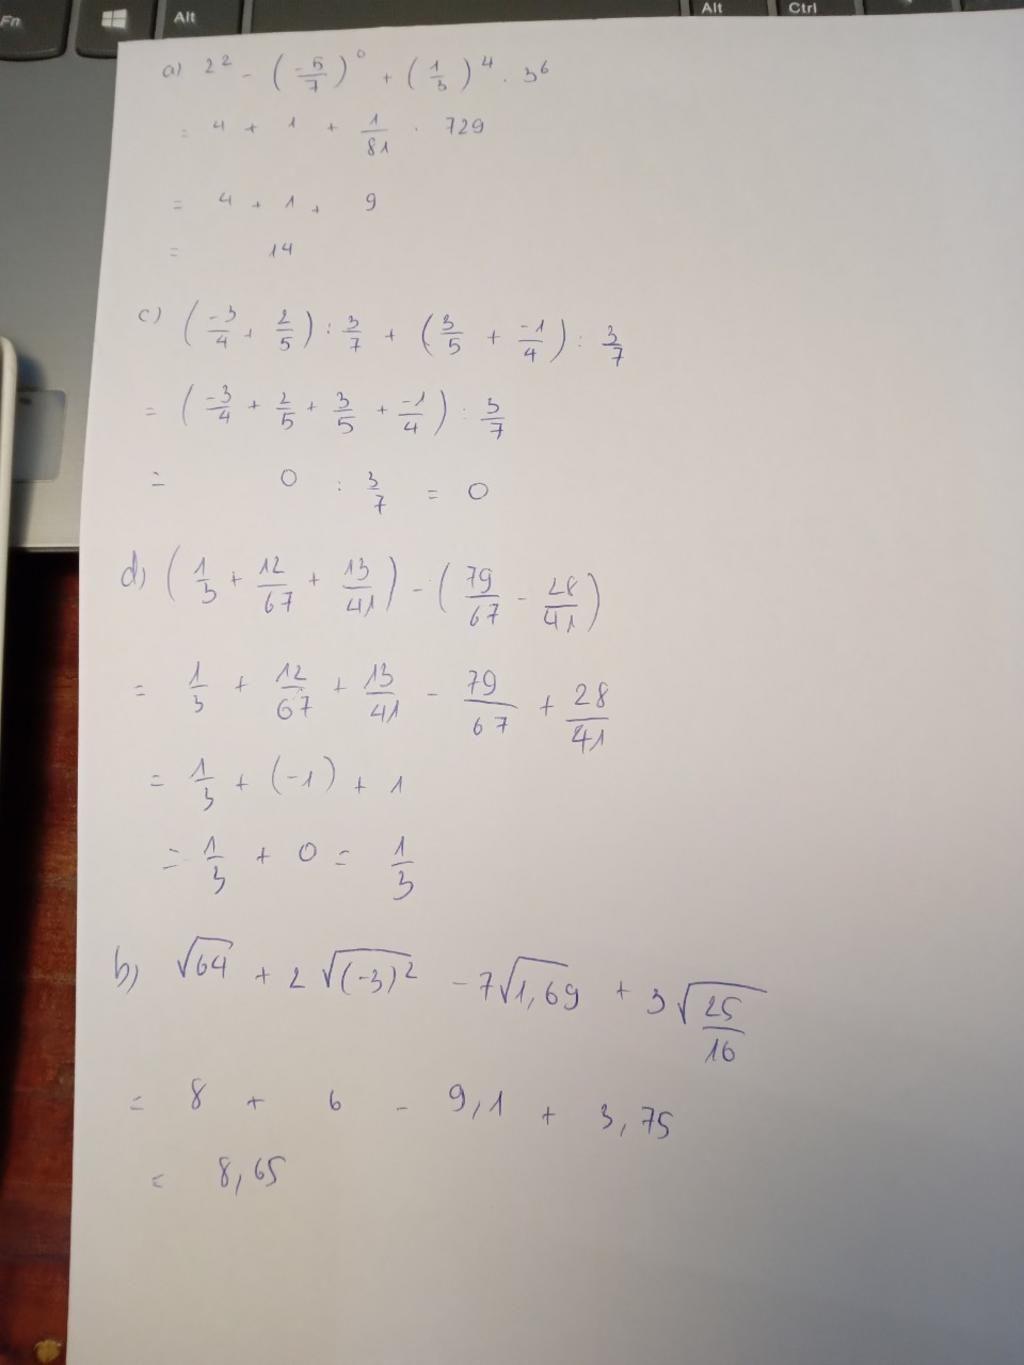 Fn Alt Alt Ctrl
a) 2² - (-5/7)⁰ + (1/3)⁴ . 3⁶
= 4 + 1 + 1/81 . 729
= 4 + 1 + 9
= 14
c) (-3/4 + 2/5) : 3/7 + (3/5 + -1/4) : 3/7
= (-3/4 + 2/5 + 3/5 + -1/4) : 3/7
= 0 : 3/7 = 0
d) (1/3 + 12/67 + 13/41) - (79/67 - 28/41)
= 1/3 + 12/67 + 13/41 - 79/67 + 28/41
= 1/3 + (-1) + 1
= 1/3 + 0 = 1/3
b) √64 + 2√(-3)² - 7√1,69 + 3√25/16
= 8 + 6 - 9,1 + 3,75
= 8,65